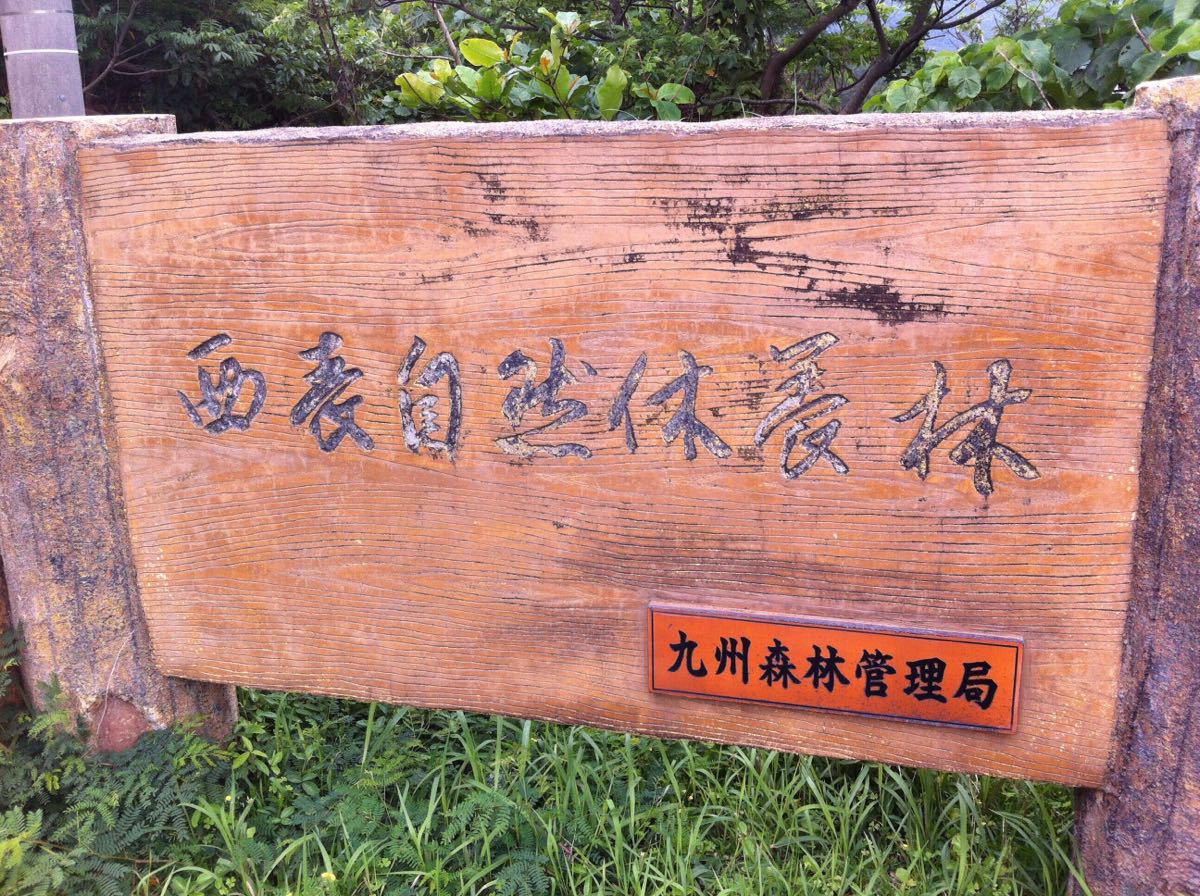 西表自然休養林
九州森林管理局